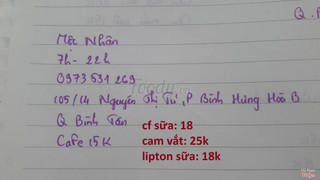 Q. P
Mộc Nhân
7h - 22h
0973531269
105/14 Nguyễn Thị Tú, P Bình Hưng Hoà B
Q Bình Tân
Cafe 15K
cf sữa: 18
cam vắt: 25k
lipton sữa: 18k